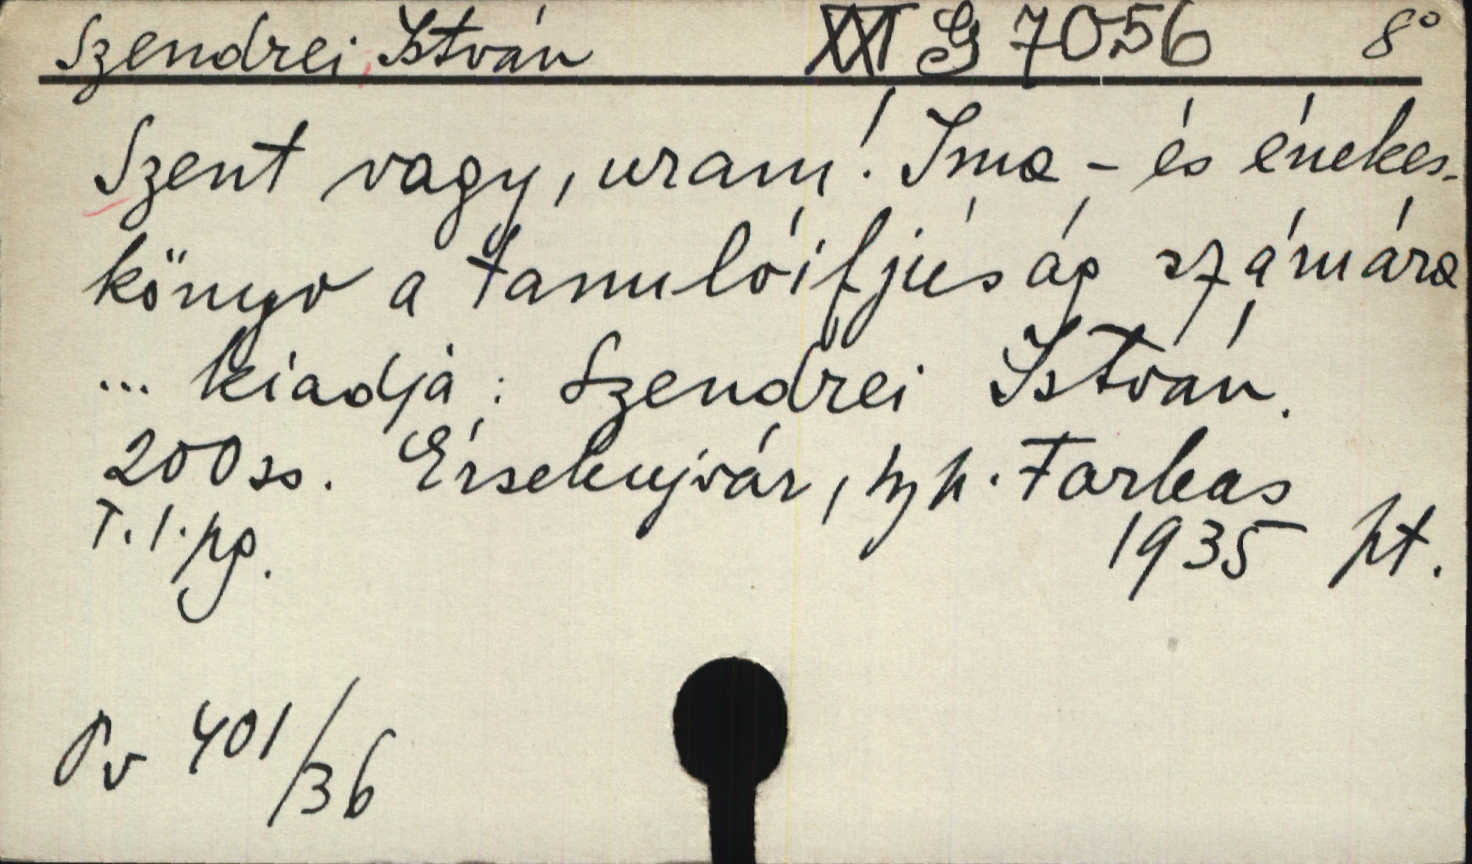 Szendrei, István XXI G 7056 8°
Szent vagy, uram! Ima - és énekes-
könyv a tanulóifjúság számára
... kiadja: Szendrei István.
200 ss. Érsekujvár, Farkas
T. l. pg. 1935 pt.
Pv 401/36